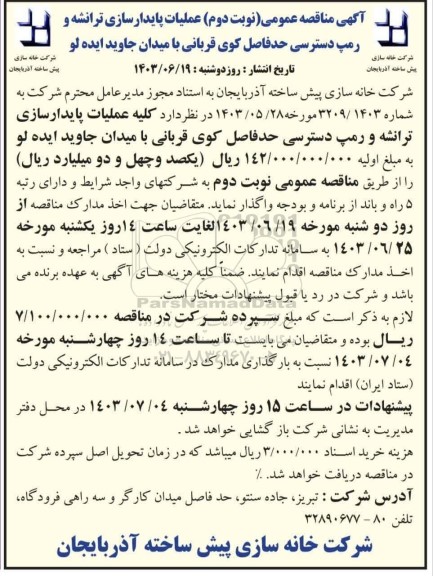 آگهی مناقصه عمومی(نوبت دوم) عملیات پایدارسازی ترانشه و
رمپ دسترسی حدفاصل کوی قربانی با میدان جاوید ایده لو
شرکت خانه سازی
پیش ساخته آذربایجان
شرکت خانه سازی
پیش ساخته آذربایجان
تاریخ انتشار : روز دوشنبه : ۱۴۰۳/۰۶/۱۹
شرکت خانه سازی پیش ساخته آذربایجان به استناد مجوز مدیرعامل محترم شرکت به
شماره ۱۴۰۳/ ۳۲۰۹ مورخه ۲۸/ ۰۵/ ۱۴۰۳ در نظر دارد کلیه عملیات پایدارسازی
ترانشه و رمپ دسترسی حدفاصل کوی قربانی با میدان جاوید ایده لو
به مبلغ اولیه ۱۴۲/۰۰۰/۰۰۰/۰۰۰ ریال (یکصد وچهل و دو میلیارد ریال)
را از طریق مناقصه عمومی نوبت دوم به شرکتهای واجد شرایط و دارای رتبه
۵ راه و باند از برنامه و بودجه واگذار نماید. متقاضیان جهت اخذ مدارک مناقصه از
روز دو شنبه مورخه ۱۹/ ۰۶/ ۱۴۰۳ لغایت ساعت ۱۴روز یکشنبه مورخه
۲۵ /۰۶/ ۱۴۰۳ به سامانه تدارکات الکترونیکی دولت ( ستاد ) مراجعه و نسبت به
اخذ مدارک مناقصه اقدام نمایند. ضمناً کلیه هزینه های آگهی به عهده برنده می
باشد و شرکت در رد یا قبول پیشنهادات مختار است.
لازم به ذکر است که مبلغ سپرده شرکت در مناقصه ۷/۱۰۰/۰۰۰/۰۰۰
ریال بوده و متقاضیان می بایست تا ساعت ۱۴ روز چهارشنبه مورخه
۰۴/ ۰۷/ ۱۴۰۳ نسبت به بارگذاری مدارک در سامانه تدارکات الکترونیکی دولت
(ستاد ایران) اقدام نمایند
پیشنهادات در ساعت ۱۵ روز چهارشنبه ۰۴/ ۰۷/ ۱۴۰۳ در محل دفتر
مدیریت به نشانی شرکت باز گشایی خواهد شد .
هزینه خرید اسناد ۳/۰۰۰/۰۰۰ ریال میباشد که در زمان تحویل اصل سپرده شرکت
در مناقصه دریافت خواهد شد. ٪
آدرس شرکت : تبریز، جاده سنتو، حد فاصل میدان کارگر و سه راهی فرودگاه،
تلفن ۸۰ - ۳۲۸۹۰۶۷۷
شرکت خانه سازی پیش ساخته آذربایجان
ParsNamadData